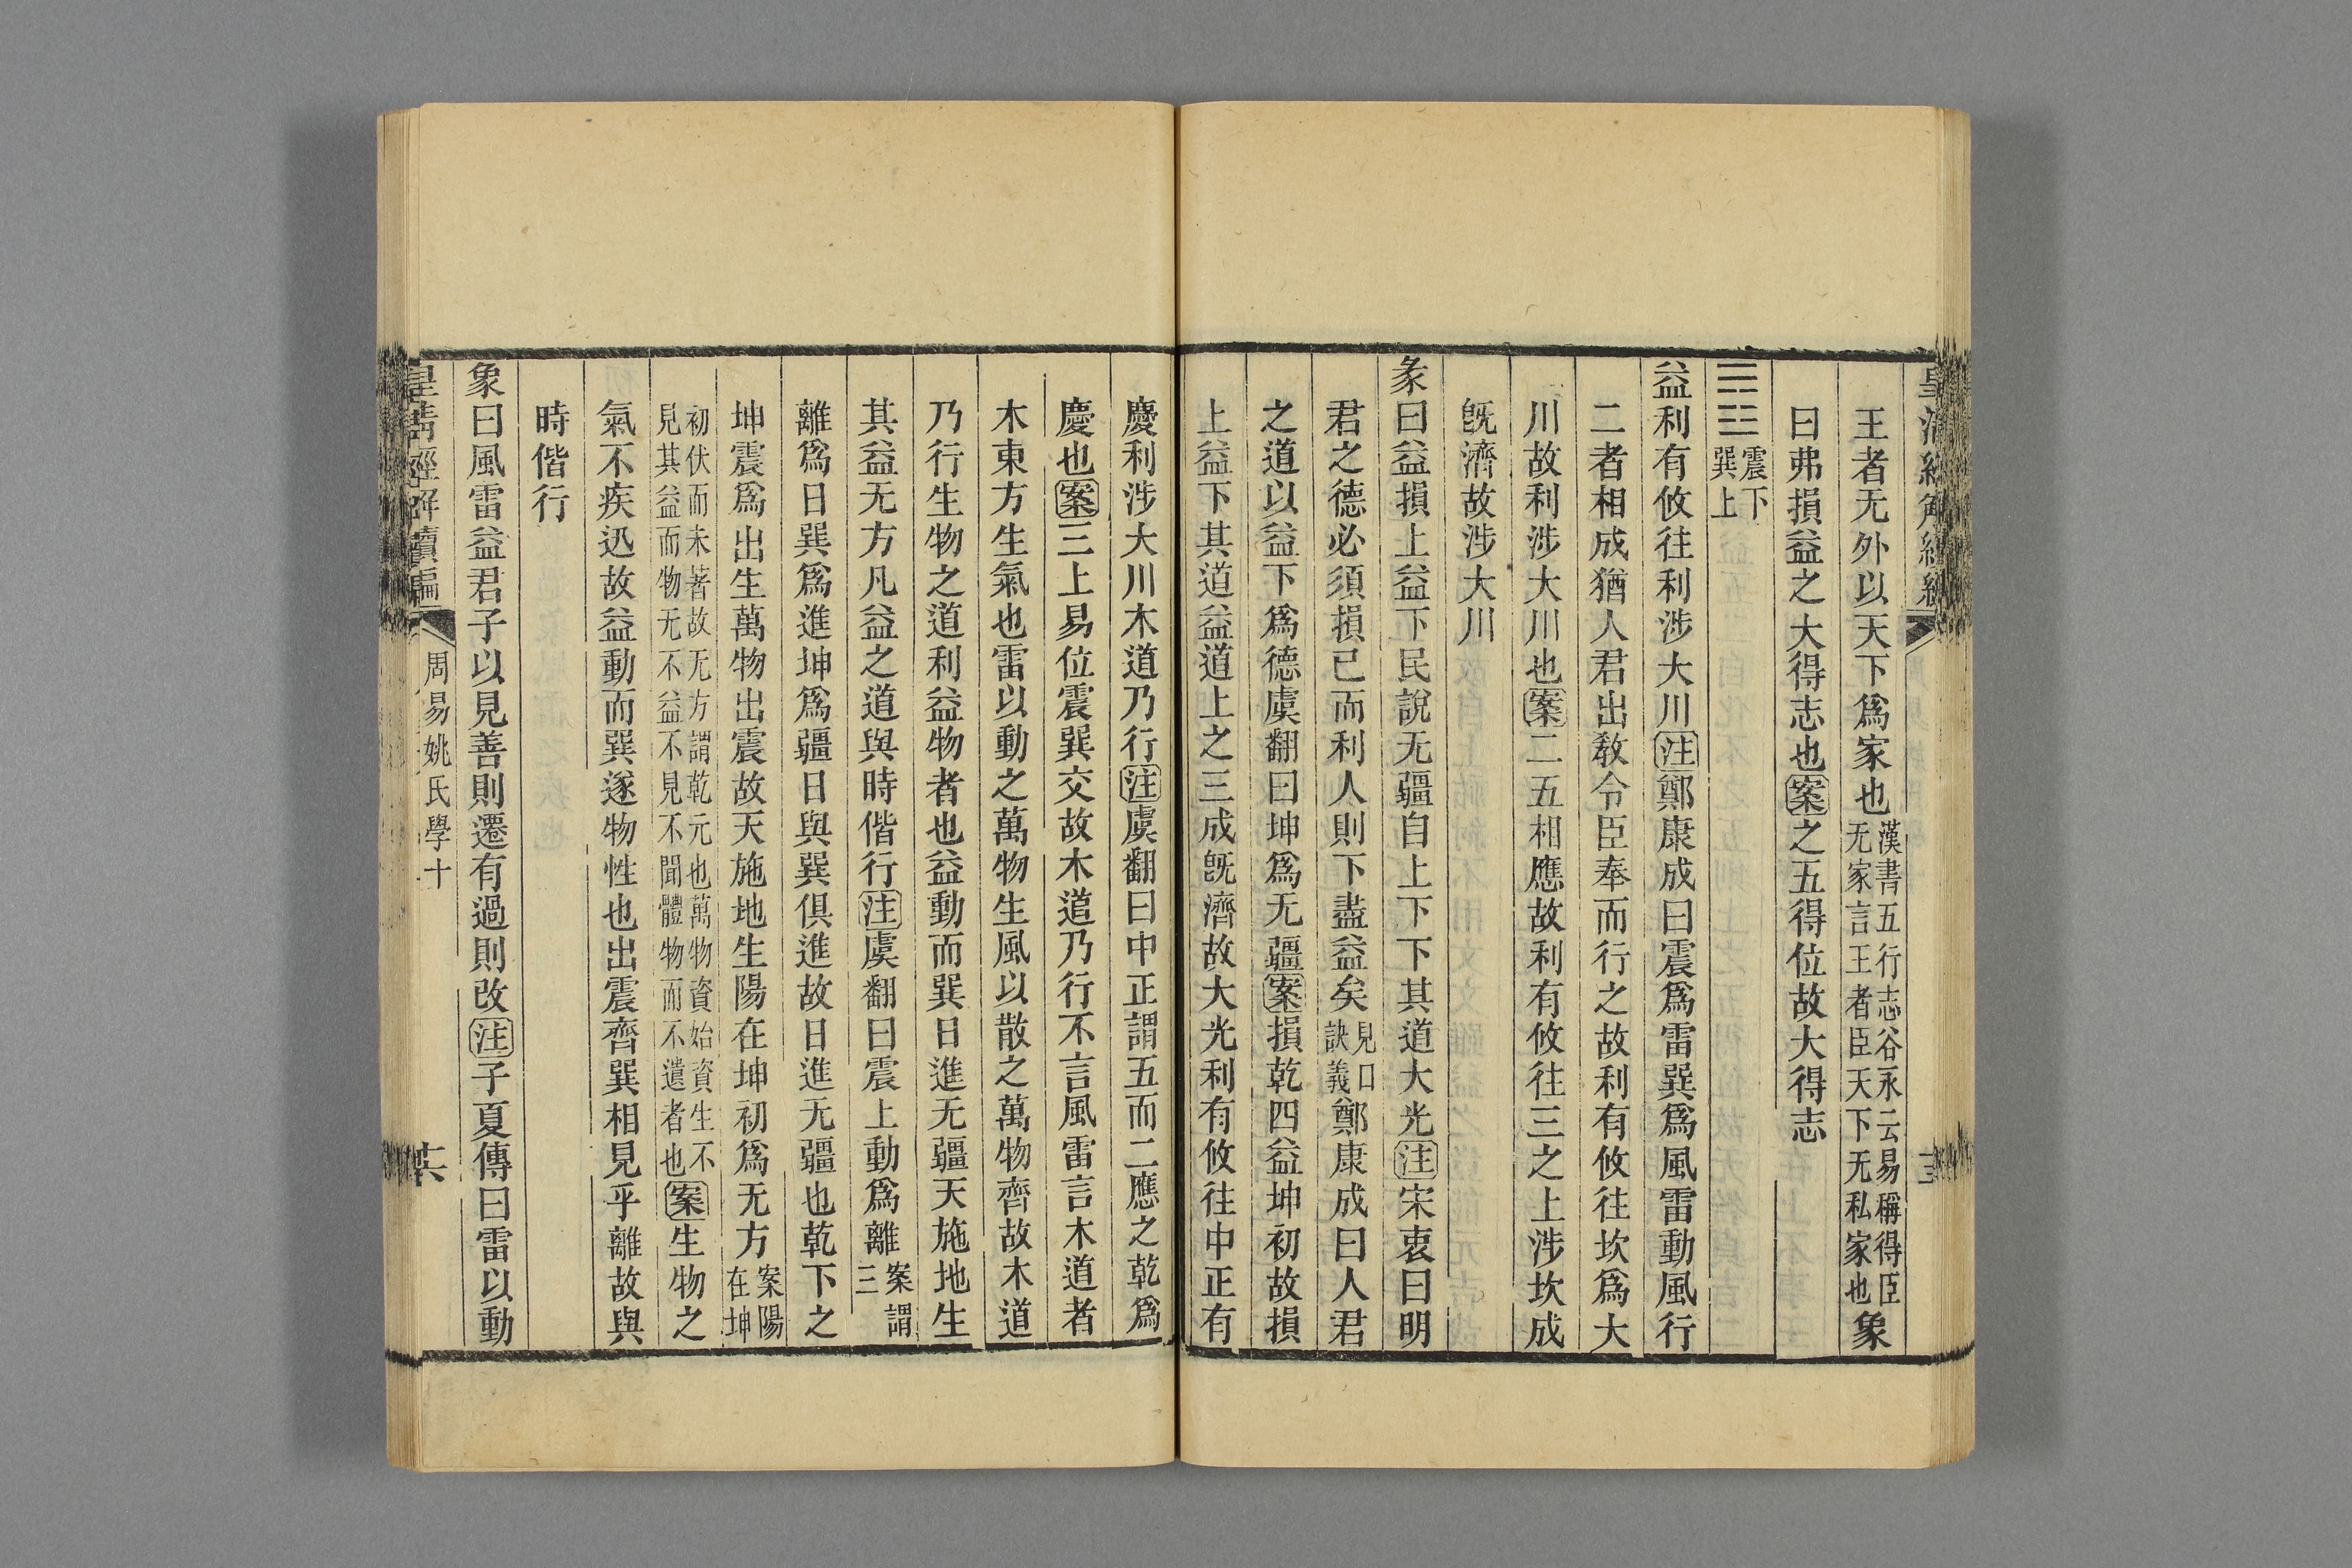 王者无外以天下爲家也漢書五行志谷永云易稱得臣无家言王者臣天下无私家也象
曰弗損益之大得志也案之五得位故大得志
䷩震下巽上
益利有攸往利涉大川注鄭康成曰震爲雷巽爲風雷動風行
二者相成猶人君出敎令臣奉而行之故利有攸往坎爲大
川故利涉大川也案二五相應故利有攸往三之上涉坎成
旣濟故涉大川
彖曰益損上益下民說无疆自上下下其道大光注宋衷曰明
君之德必須損己而利人則下盡益矣見口訣義鄭康成曰人君
之道以益下爲德虞翻曰坤爲无疆案損乾四益坤初故損
上益下其道益道上之三成旣濟故大光利有攸往中正有
慶利涉大川木道乃行注虞翻曰中正謂五而二應之乾爲
慶也案三上易位震巽交故木道乃行不言風雷言木道者
木東方生氣也雷以動之萬物生風以散之萬物齊故木道
乃行生物之道利益物者也益動而巽日進无疆天施地生
其益无方凡益之道與時偕行注虞翻曰震上動爲離案謂三
離爲日巽爲進坤爲疆日與巽俱進故日進无疆也乾下之
坤震爲出生萬物出震故天施地生陽在坤初爲无方案陽在坤
初伏而未著故无方謂乾元也萬物資始資生不見其益而物无不益不見不聞體物而不遺者也案生物之
氣不疾迅故益動而巽遂物性也出震齊巽相見乎離故與
時偕行
象曰風雷益君子以見善則遷有過則改注子夏傳曰雷以動
皇淸經解續編
周易姚氏學十
十六